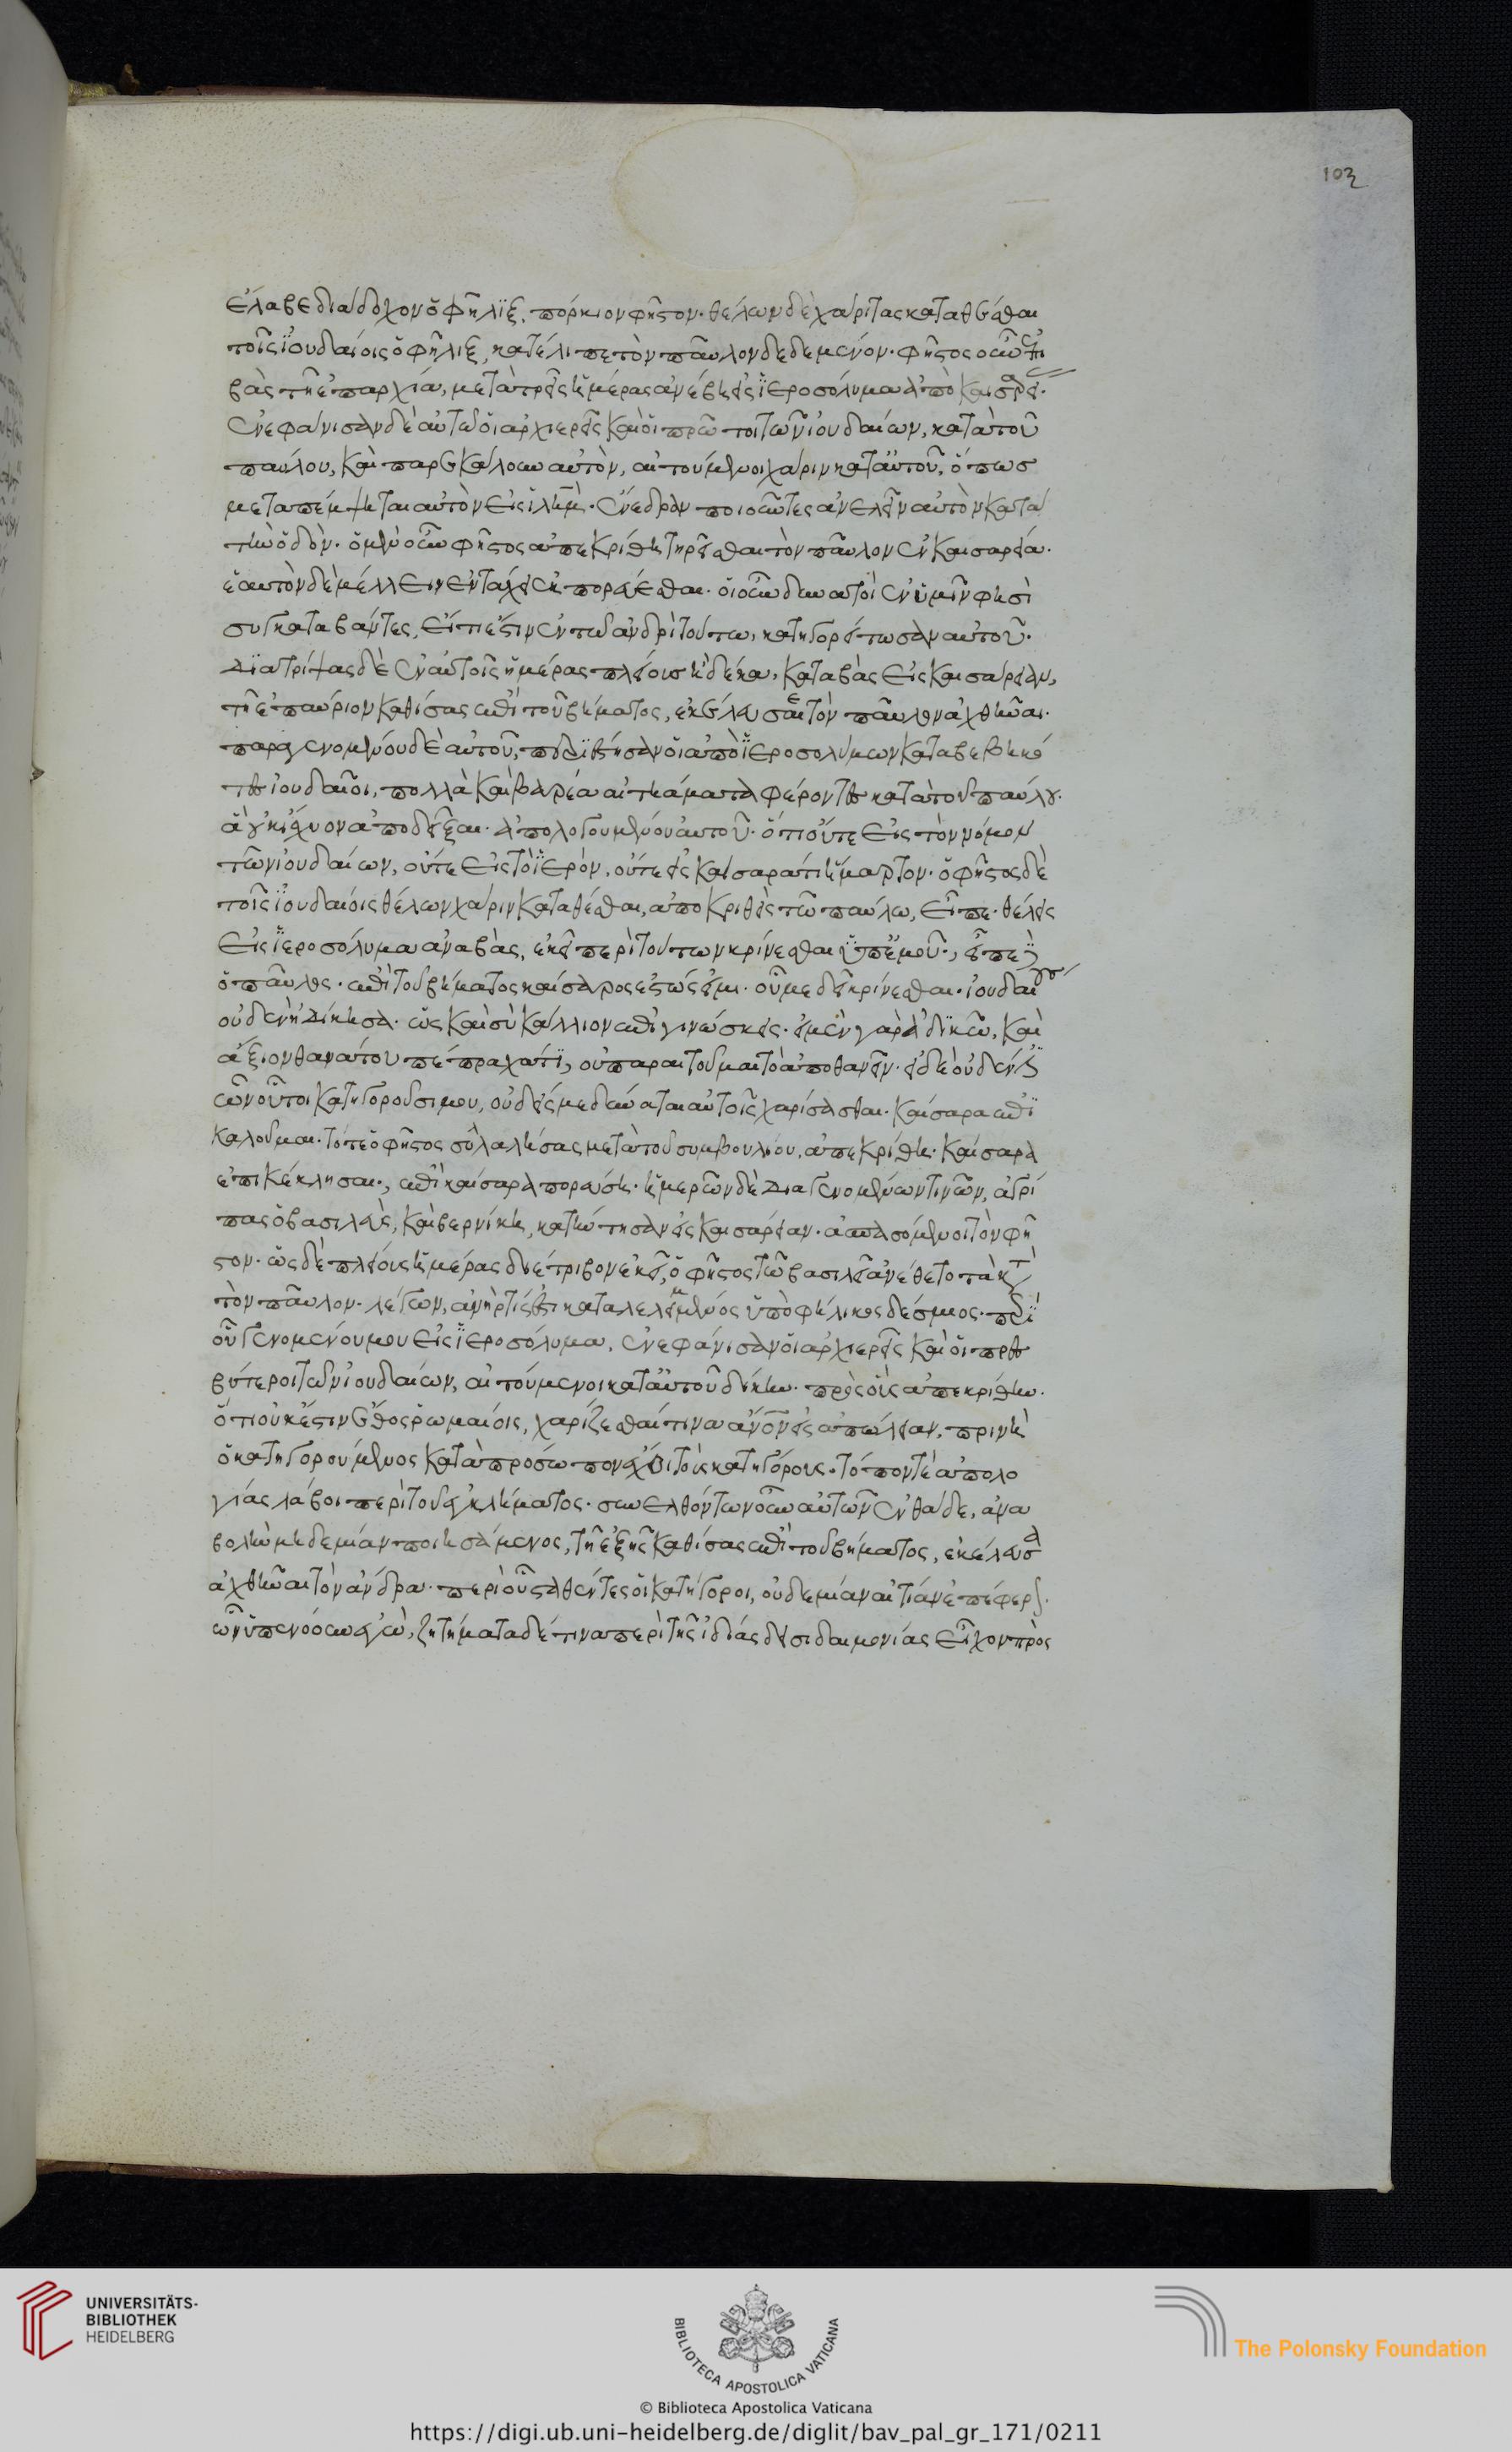 103
ἔλαβε διάδοχον ὁ φῆλιξ, πόρκιον φῆστον· θέλων δὲ χάριτας καταθέσθαι
τοῖς ἰουδαίοις ὁ φῆλιξ, κατέλιπε τὸν παῦλον δεδεμένον· φῆστος οὖν ἐπι
βὰς τῇ ἐπαρχία, μετὰ τρεῖς ἡμέρας ἀνέβη εἰς ἱεροσόλυμα ἀπὸ καισαρεί·
ἐνεφάνισαν δὲ αὐτῶ οἱ ἀρχιερεῖς καὶ οἱ πρῶτοι τῶν ἰουδαίων, κατὰ τοῦ
παύλου, καὶ παρεκάλουν αὐτὸν, αἰτούμενοι χάριν κατ αὐτοῦ, ὅπως
μεταπέμψηται αὐτὸν εἰς ἱλημ· ἐνέδραν ποιοῦντες ἀνελεῖν αὐτὸν κατὰ
τὴν ὁδὸν· ὁ μὲν οὖν φῆστος ἀπεκρίθη τηρεῖσθαι τὸν παῦλον ἐν καισαρεία·
ἑαυτὸν δὲ μέλλειν ἐν τάχει ἐκπορεύεσθαι· οἱ οὖν δυνατοὶ ἐν ὑμῖν φησὶ
συγκαταβάντες, εἴ τι ἐστὶν ἐν τῶ ἀνδρὶ τούτω, κατηγορείτωσαν αὐτοῦ·
διατρίψας δὲ ἐν αὐτοῖς ἡμέρας πλείους ἢ δέκα, καταβὰς εἰς καισάρειαν,
τῇ ἐπαύριον καθίσας ἐπὶ τοῦ βήματος, ἐκέλευσε τὸν παῦλον ἀχθῆναι·
παραγενομένου δὲ αὐτοῦ, περιέστησαν οἱ ἀπὸ ἱεροσολύμων καταβεβηκό
τες ἰουδαῖοι, πολλὰ καὶ βαρέα αἰτιάματα φέροντες κατὰ τοῦ παύλου·
ἃ οὐκ ἴσχυον ἀποδεῖξαι· ἀπολογουμένου αὐτοῦ· ὅτι οὔτε εἰς τὸν νόμον
τῶν ἰουδαίων, οὔτε εἰς τὸ ἱερὸν, οὔτε εἰς καίσαρά τι ἥμαρτον· ὁ φῆστος δὲ
τοῖς ἰουδαίοις θέλων χάριν καταθέσθαι, ἀποκριθεὶς τῶ παύλω, εἶπε· θέλεις
εἰς ἱεροσόλυμα ἀναβὰς, ἐκεῖ περὶ τούτων κρίνεσθαι ἐπ ἐμοῦ·, εἶπε δὲ
ὁ παῦλος· ἐπὶ τοῦ βήματος καίσαρος ἑστώς εἰμι· οὗ με δεῖ κρίνεσθαι· ἰουδαίους
οὐδὲν ἠδίκησα· ὡς καὶ σὺ κάλλιον ἐπιγινώσκεις· εἰ μὲν γὰρ ἀδικῶ, καὶ
ἄξιον θανάτου πέπραχά τι, οὐ παραιτοῦμαι τὸ ἀποθανεῖν· εἰ δὲ οὐδέν ἐστιν
ὧν οὗτοι κατηγοροῦσι μου, οὐδείς με δύναται αὐτοῖς χαρίσασθαι· καίσαρα ἐπι
καλοῦμαι· τότε ὁ φῆστος συλλαλήσας μετὰ τοῦ συμβουλίου, ἀπεκρίθη· καίσαρα
ἐπικέκλησαι·, ἐπὶ καίσαρα πορεύση· ἡμερῶν δὲ διαγενομένων τινῶν, ἀγρί
πας ὁ βασιλεὺς, καὶ βερνίκη, κατήντησαν εἰς καισάρειαν· ἀσπασόμενοι τὸν φῆ
στον· ὡς δὲ πλείους ἡμέρας διέτριβον ἐκεῖ, ὁ φῆστος τῶ βασιλεῖ ἀνέθετο τὰ κατὰ
τὸν παῦλον· λέγων, ἀνήρ τίς ἐστι καταλελειμμένος ὑπὸ φήλικος δέσμιος· περὶ
οὗ γενομένου μου εἰς ἱεροσόλυμα, ἐνεφάνισαν οἱ ἀρχιερεῖς καὶ οἱ πρεσ
βύτεροι τῶν ἰουδαίων, αἰτούμενοι κατ αὐτοῦ δίκην· πρὸς οὓς ἀπεκρίθην·
ὅτι οὐκ ἔστιν ἔθος ῥωμαίοις, χαρίζεσθαί τινα ἄνον εἰς ἀπώλειαν, πρινὴ
ὁ κατηγορούμενος κατὰ πρόσωπον ἔχοι τοὺς κατηγόρους· τόπον τὲ ἀπολο
γίας λάβοι περὶ τοῦ ἐγκλήματος· συνελθόντων οὖν αὐτῶν ἐνθάδε, ἀνα
βολὴν μηδεμίαν ποιησάμενος, τῇ ἑξῆς καθίσας ἐπὶ τοῦ βήματος, ἐκέλευσα
ἀχθῆναι τὸν ἄνδρα· περὶ οὗ σταθέντες οἱ κατήγοροι, οὐδεμίαν αἰτίαν ἐπέφερον·
ὧν ὑπενόουν ἐγὼ, ζητήματα δέ τινα περὶ τῆς ἰδίας δεισιδαιμονίας εἶχον πρὸς
UNIVERSITÄTS-
BIBLIOTHEK
HEIDELBERG
BIBLIOTECA APOSTOLICA VATICANA
The Polonsky Foundation
© Biblioteca Apostolica Vaticana
https://digi.ub.uni-heidelberg.de/diglit/bav_pal_gr_171/0211